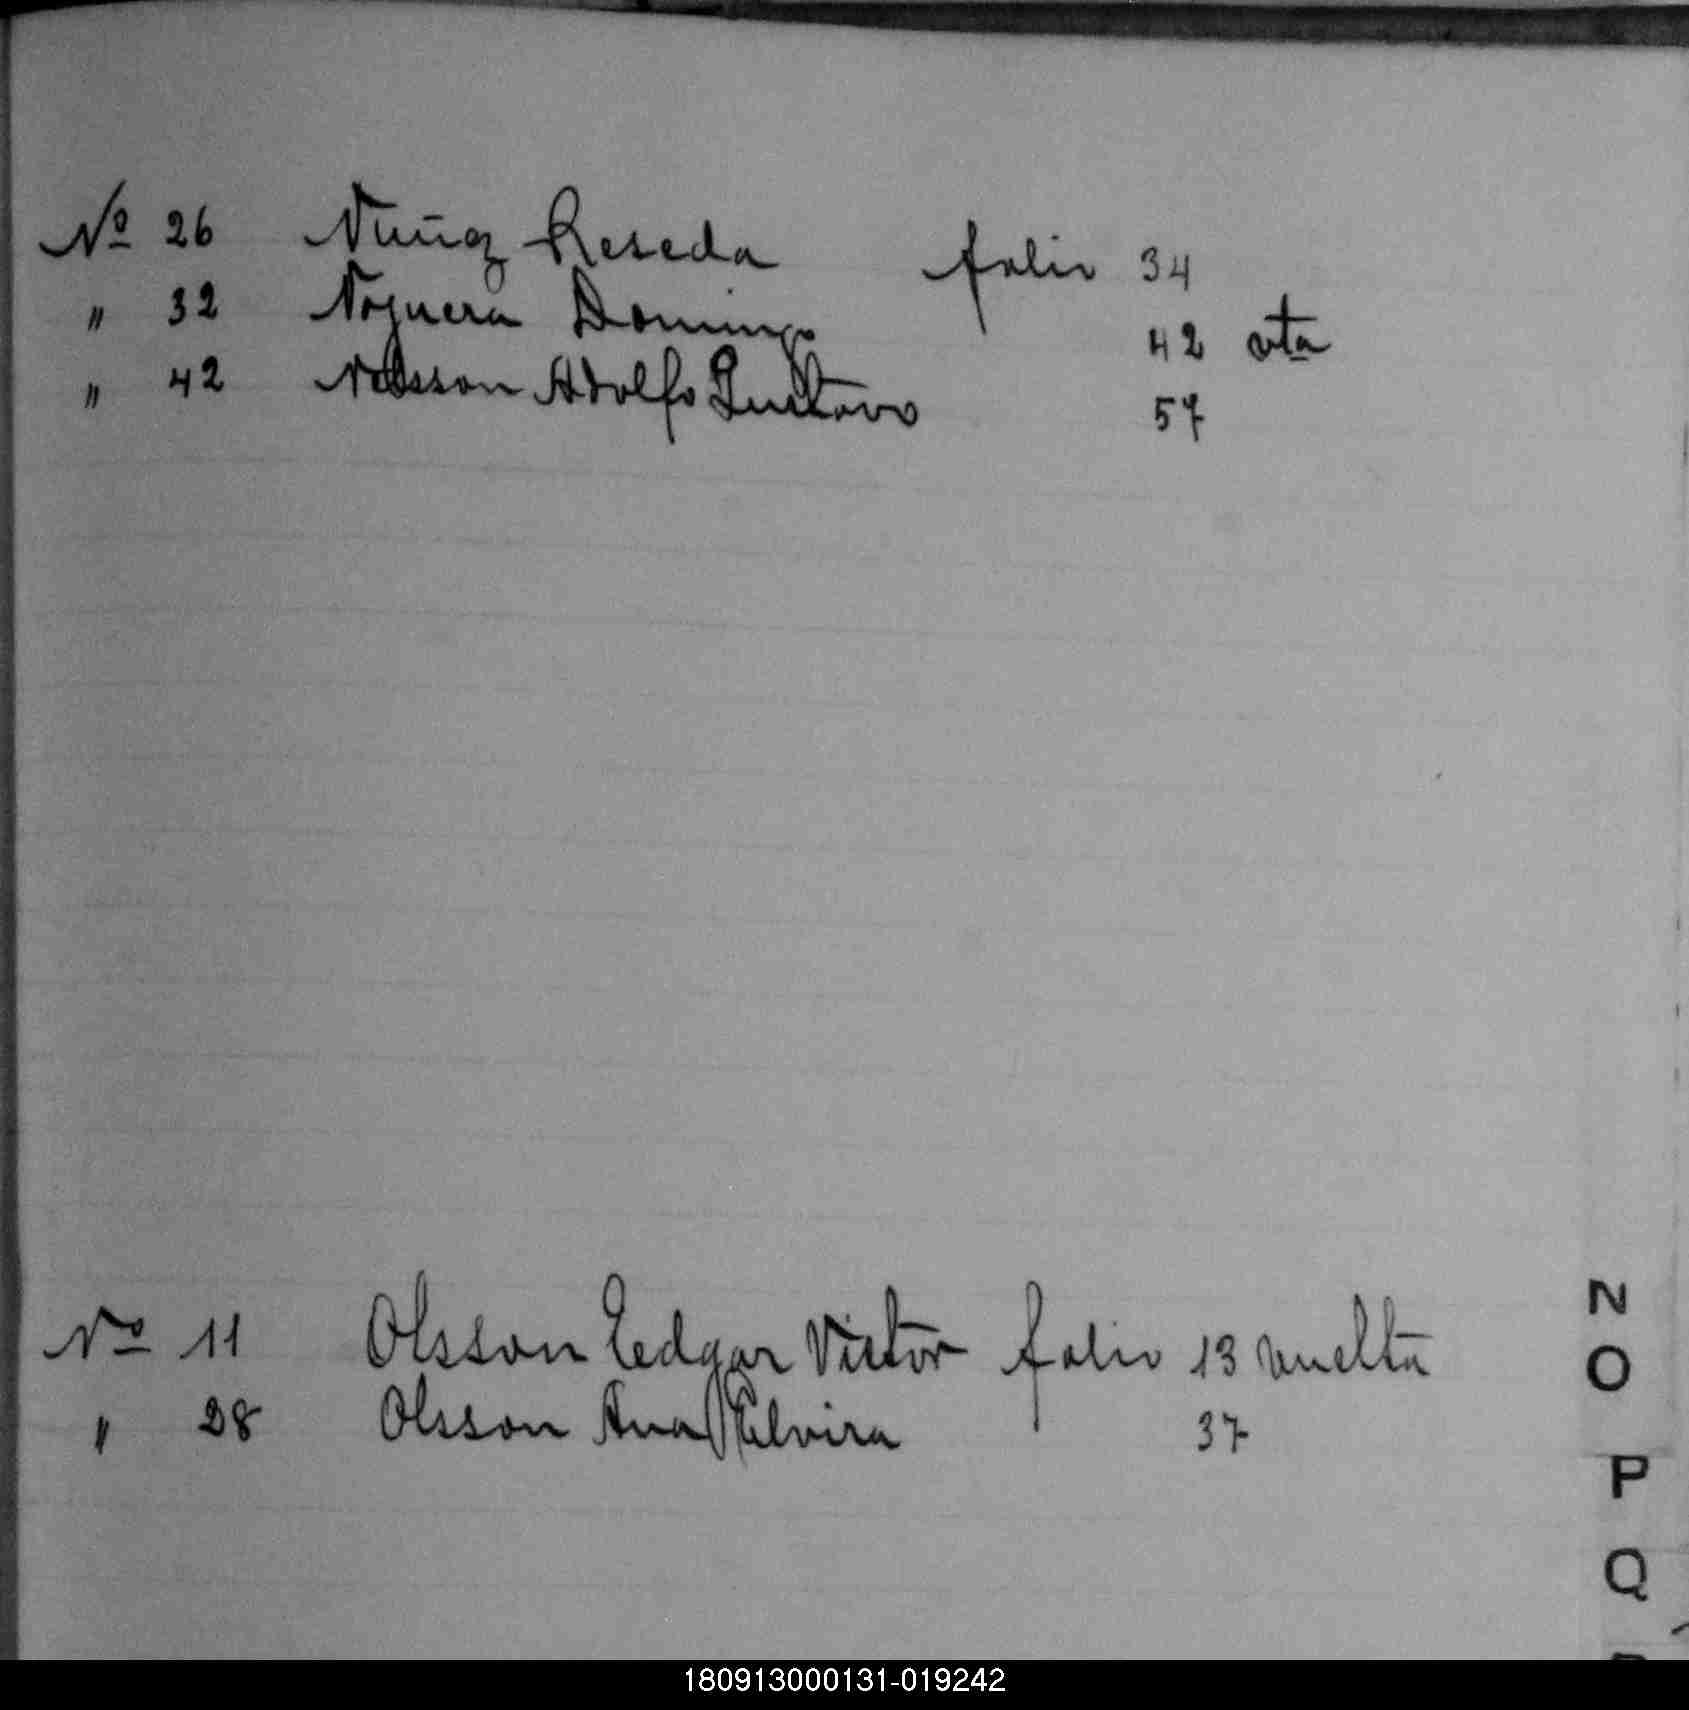 Nº 26 Nuñez Reseda folio 34
" 32 Noguera Domingo 42 vta
" 42 Nelsson Adolfo Gustavo 57
Nº 11 Olsson Edgar Victor folio 13 vuelta
" 28 Olsson Ana Elvira 37
N
O
P
Q
180913000131-019242